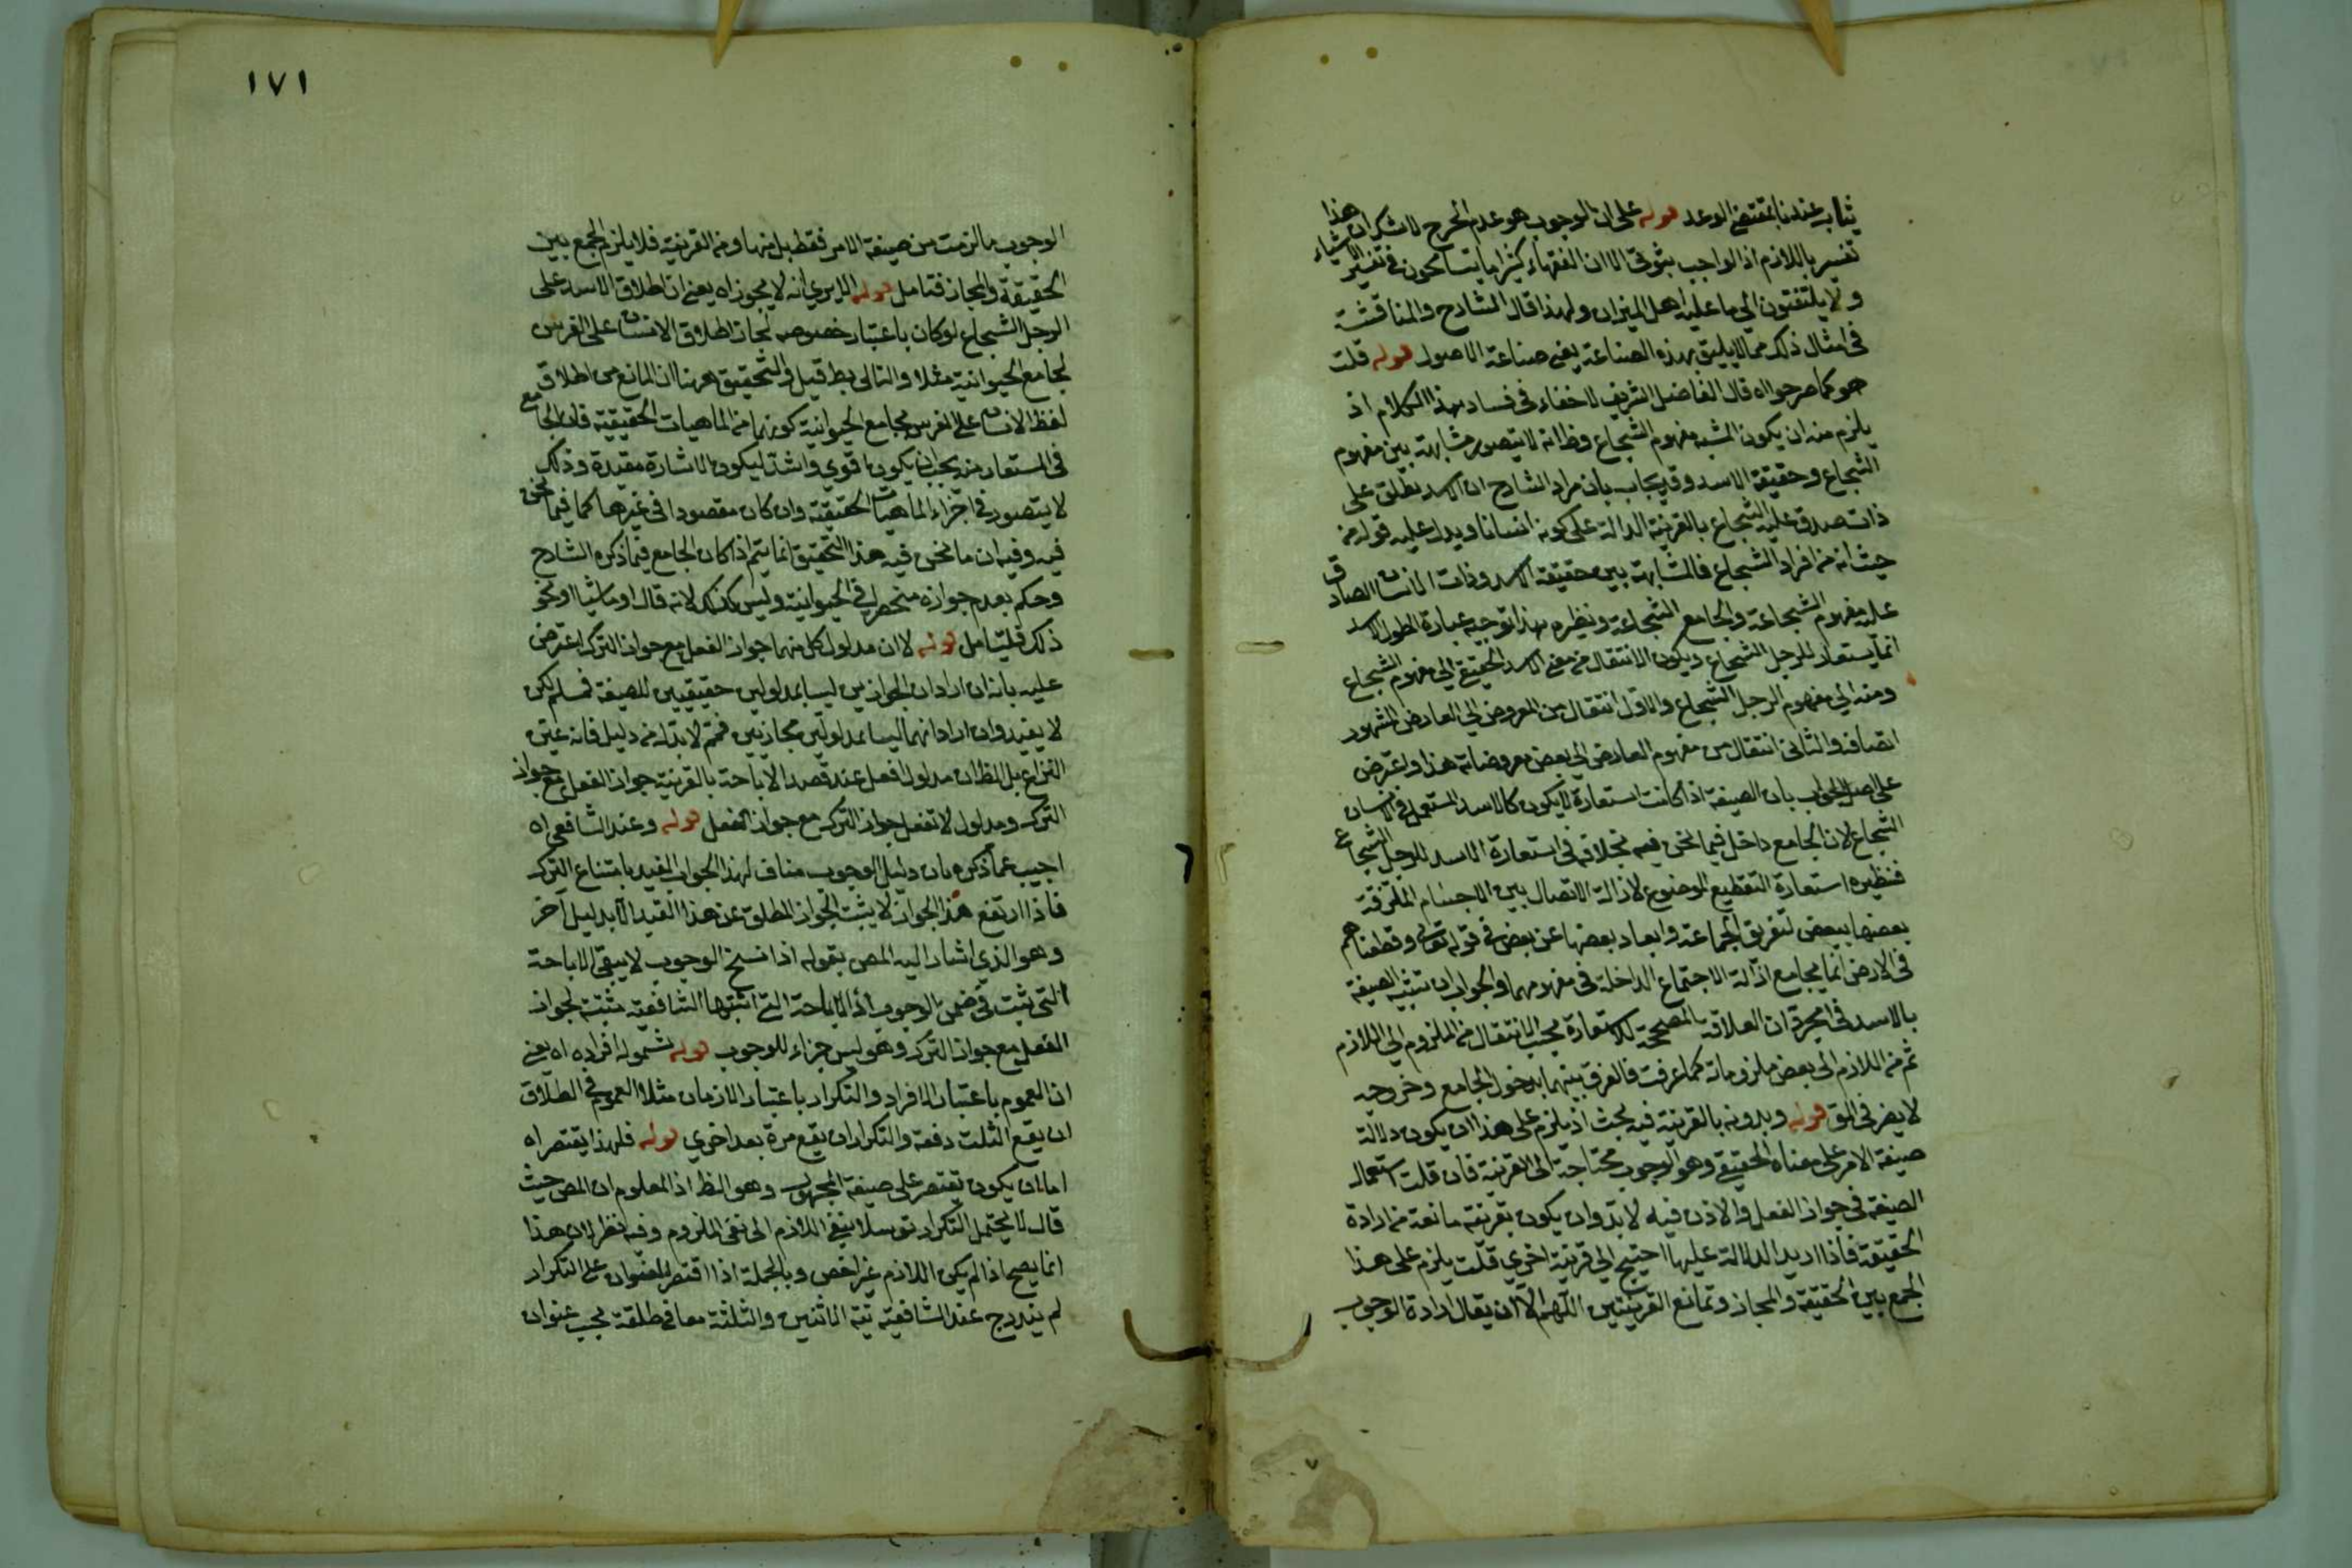 يثاب عندنا بمقتضى الوعد قوله على ان الوجوب هو عدم الحرج لا شك ان هذا
تفسير باللازم اذ الواجب الا ان الفقهاء كثيرا ما يتسامحون في تفسير الاشياء
ولا يلتفتون الى ما عليه اهل الميزان ولهذا قال الشارح والمناقشة
في امثال ذلك مما لا يليق بهذه الصناعة يعني صناعة الاصول قوله قلت
هو كما صرحوا اه قال الفاضل الشريف لا خفاء في فساد هذا الكلام اذ
يلزم منه ان يكون المشبه مفهوم الشجاع وظ انه لا يتصور مشابهة بين مفهوم
الشجاع وحقيقة الاسد وقد يجاب بان مراد الشارح ان الاسد يطلق على
ذات صدق عليه الشجاع بالقرينة الدالة على كونه انسانا ويدل عليه قوله من
حيث انه من افراد الشجاع فالمشابهة بين حقيقة الاسد وذات الانسان الصادق
عليه مفهوم الشجاعة والجامع الشجاعة ونظيره بهذا توجيه عبارة المطول الاسد
انما يستعار للرجل الشجاع ويكون الانتقال من معنى الاسد الحقيقي الى مفهوم الشجاع
ومنه الى مفهوم الرجل الشجاع والاول انتقال من المعروض الى العارض المشهور
اتصافه والثاني انتقال من مفهوم العارض الى بعض معروضاته هذا واعترض
على اصل الجواب بان الصيغة اذا كانت استعارة لا يكون كالاسد المستعمل في الانسان
الشجاع لان الجامع داخل فيما نحن فيه بخلافه في استعارة الاسد للرجل الشجاع
فنظيره استعارة التقطيع الموضوع لازالة الاتصال بين الاجسام الملتزقة
بعضها ببعض لتفريق الجماعة وابعاد بعضها عن بعض في قوله تعالى وقطعناهم
في الارض انما بجامع ازالة الاجتماع الداخلة في مفهومهما والجواب ان تشبيه الصيغة
بالاسد في مجرد ان العلاقة المصححة للاستعارة بحسب الانتقال من الملزوم الى اللازم
ثم من اللازم الى بعض ملزوماته كما عرفت فالفرق بينهما بدخول الجامع وخروجه
لا يضر في المق قوله وبدونه بالقرينة فيه بحث اذ يلزم على هذا ان يكون دلالة
صيغة الامر على معناه الحقيقي وهو الوجوب محتاجة الى القرينة فان قلت استعمال
الصيغة في جواز الفعل والاذن فيه لا بد وان يكون بقرينة مانعة من ارادة
الحقيقة فاذا اريد الدلالة عليها احتيج الى قرينة اخرى قلت يلزم على هذا
الجمع بين الحقيقة والمجاز وتمانع القرينتين اللهم الا ان يقال ارادة الوجوب
١٧١
الوجوب ما لزمت من صيغة الامر فقط بل منها ومن القرينة فلا يلزم الجمع بين
الحقيقة والمجاز فتامل قوله الا يرى انه لا يجوز اه يعني ان اطلاق الاسد على
الرجل الشجاع لو كان باعتبار خصوصه لجاز اطلاق الانسان على الفرس
لجامع الحيوانية مثلا والتالي بط قيل والتحقيق ههنا ان المانع من اطلاق
لفظ الانسان على الفرس بجامع الحيوانية كونهما من الماهيات الحقيقية فان الجامع
في المستعار منه يجب ان يكون اقوى واشد ليكون الاشارة مفيدة وذلك
لا يتصور في اجزاء الماهيات الحقيقية وان كان مقصودا في غيرها كما فيما نحن
فيه وفيه ان ما نحن فيه هذا التحقيق انما يتم اذا كان الجامع فيما ذكره الشارح
وحكم بعدم جوازه منحصرا في الحيوانية وليس كذلك لانه قال او ماشيا او نحو
ذلك فليتامل قوله لا ان مدلول كل منهما جواز الفعل مع جواز الترك اعترض
عليه بانه ان اراد ان الجوازين ليسا بمدلولين حقيقيين للصيغة فمسلم لكن
لا يفيد وان اراد انهما ليسا بمدلولين مجازيين فمم لا بد له من دليل فانه عين
النزاع بل الظ ان مدلول افعل عند قصد الاباحة بالقرينة جواز الفعل مع جواز
الترك ومدلول لا تفعل جواز الترك مع جواز الفعل قوله وعند الشافعي اه
اجيب عما ذكره بان دليل الوجوب مناف لهذا الجواب المفيد بامتناع الترك
فاذا ارتفع هذا الجواز لا يثبت الجواز المطلق عن هذا القيد الا بدليل آخر
وهو الذي اشار اليه المص بقوله اذا نسخ الوجوب لا يبقى الاباحة
التي تثبت في ضمن الوجوب اذ الاباحة التي اثبتها الشافعية مثبتة لجواز
الفعل مع جواز الترك وهو ليس جزاء للوجوب قوله شموله افراده اه يعني
ان العموم باعتبار الافراد والتكرار باعتبار الازمان مثلا العموم في الطلاق
ان يقع الثلث دفعة والتكرار ان يقع مرة بعد اخرى قوله فلهذا يقتصر اه
اما ان يكون تقتصر على صيغة المجهول وهو الظ اذ المعلوم ان المص حيث
قال لا يحتمل التكرار توسلا بنفي اللازم الى نفي الملزوم وفيه نظر لان هذا
انما يصح اذا لم يكن اللازم غير اخص وبالجملة اذا اقتصر العنوان على التكرار
لم يندرج عند الشافعية نية الاثنين والثلثة معا في طلقة بحسب عنوان